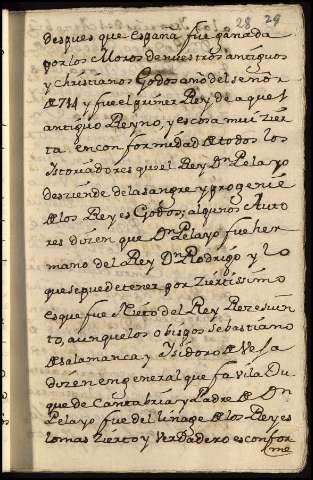 28 29
despues que España fue ganada
por los Moros de nuestros antiguos
y christianos Godos año del señor
de 714 y fue el primer Rey de aquel
antiguo Reyno, y es cosa mui zier
ta en conformidad de todos los
Istoriadores que el Rey Dn Pelayo
desziende de la sangre y progenie
de los Reyes Godos; algunos Auto
res dizen que Dn Pelayo fue her
mano del Rey Dn Rodrigo y lo
que se puede tener por ziertissimo
es que fue Nieto del Rey Rezesuin
to, aunque los obispos Sebastiano
de Salamanca y Isidoro de Vexa
dizen en general que favila Du
que de Cantabria y Padre de Dn
Pelayo fue del linage de los Reyes
lo mas zierto y verdadero es confor
me